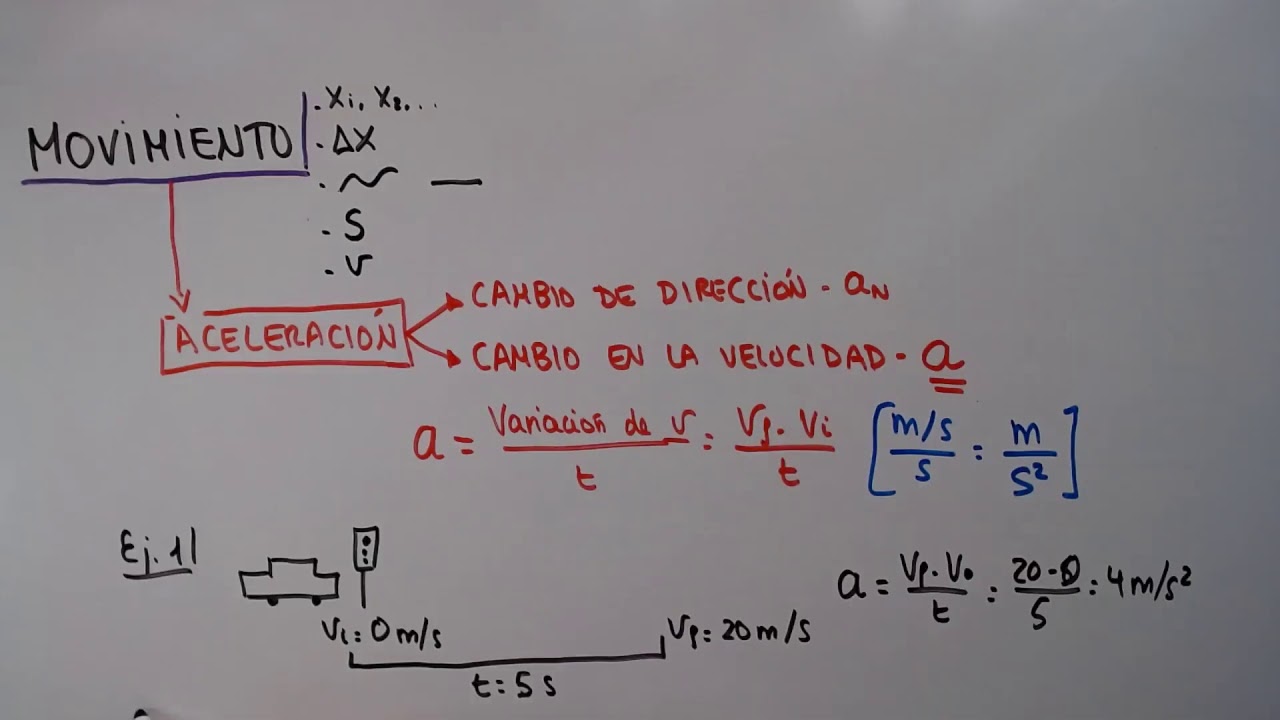 MOVIMIENTO
. Xi, X2, ...
. ΔX
. S
. v
ACELERACIÓN
CAMBIO DE DIRECCIÓN - aN
CAMBIO EN LA VELOCIDAD - a
a = Variación de v / t = Vf - Vi / t [m/s / s = m / s²]
Ej. 1|
a = Vf - V0 / t = 20 - 0 / 5 = 4 m/s²
Vi = 0 m/s
Vf = 20 m/s
t = 5 s